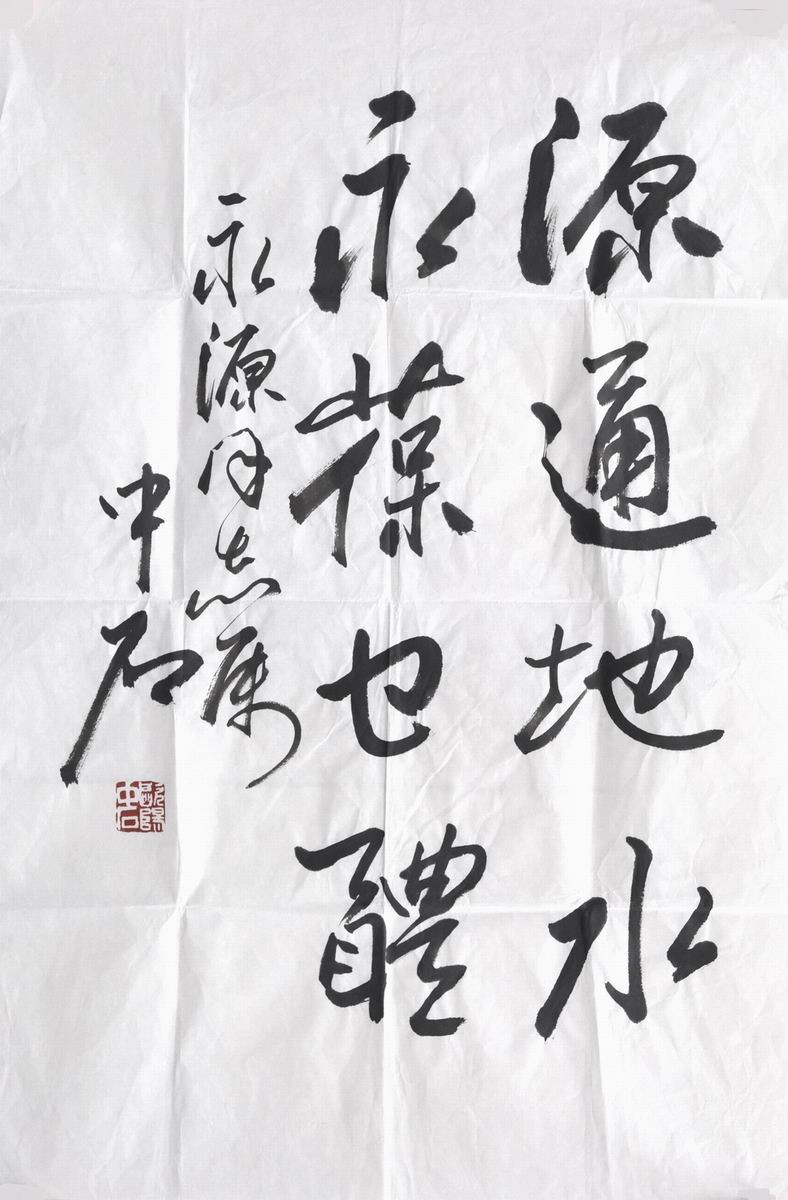 源通地水
永葆也醴
永源同志属
中石
歐陽中石